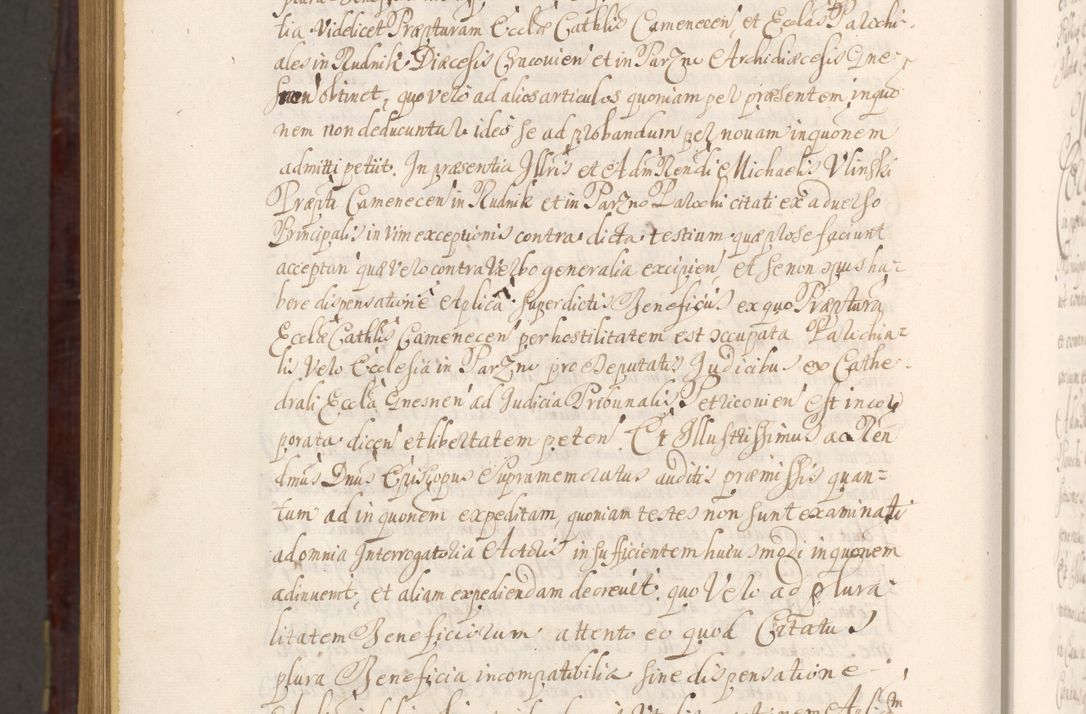 tia Videlicet Præpturam Ecclæ Cathlis Camenecen̄, et Eccl̃as Parochi-
ales in Rudnik Diæcesis Cracovien̄ et in Parzno Archidiæcesis Gne-
snen̄ obtinet, quo vero ad alios articulos quoniam per præsentem inquo
nem non deducuntur ideo se ad probandum per novam inquonem
admitti petiit. In præsentia Jllris et Adm̄ Rendi Michaelis Vlinski
Præpti Camenecen̄ in Rudnik et in Parzno Parochi citati ex adverso
Principalis in vim exceptionis contra dicta testium quæ pro se faciunt
acceptan̄ quæ vero contra Verbo generalia excipien̄, et se non opus ha-
bere dispensatione Aplica super dictis Beneficiis ex quo Præptura
Ecclæ Cathlis Camenecen̄ per hostilitatem est occupata Parochia-
lis vero Ecclesia in Parzno pro Deputatis Judicibus ex Cathe-
drali Eccla Gnesnen̄ ad Judicia Tribunalis Petricovien̄ est incor
porata dicen̄ et libertatem peten̄ Et Illustrissimus ac Ren
dmus Dnus Episcopus Supramemoratus auditis præmissis quan-
tum ad inquonem expeditam, quoniam testes non sunt examinati
ad omnia Interrogatoria Actoris insufficientem huiusmodi inquonem
adinvenit, et aliam expediendam decrevit. quo Vero ad plura
litatem Beneficiorum attento eo quod Citatus
plura Beneficia incompatibilia sine dispensatione